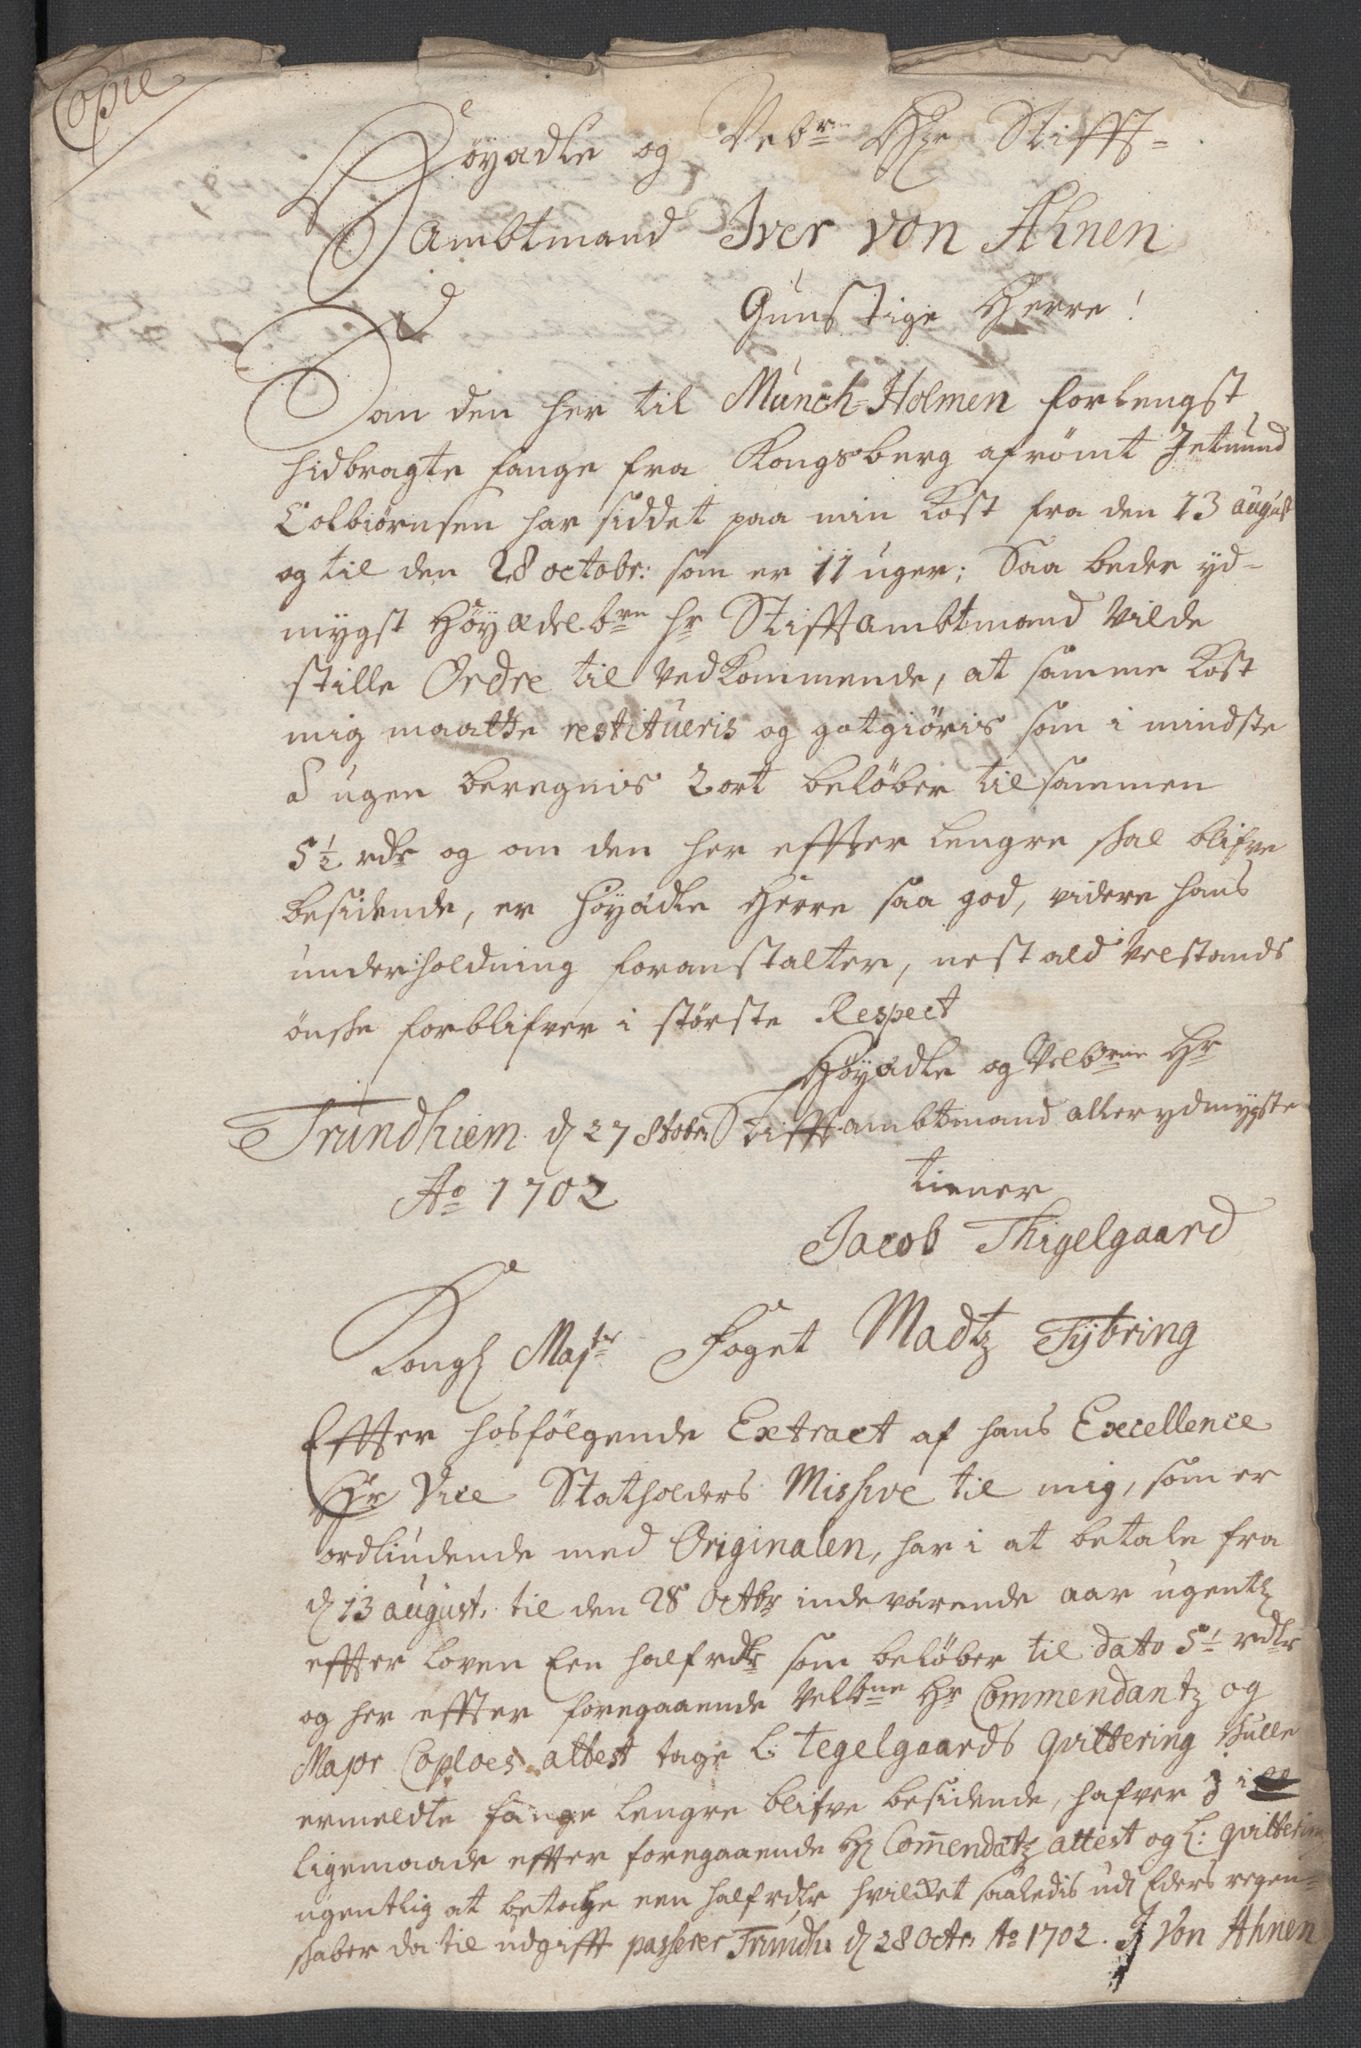 Copie
Höyædle og Velbr Hr Stifft-
Ambtmand Iver von Ahnen
Gunstige Herre!
Saasom den her til Münch-Holmen forlengst
hidbragte fange fra Kongsberg afrömt Jetmund
Colbiørnsen har siddet paa min Kost fra den 13 august
og til den 28 octobr: som er 11 uger; Saa beder yd-
mygst Höyædelbrn hr Stifftambtmand Vilde
stille Ordre til Vedkommende, at samme Kost
mig maatte restitueris og gotgiöris som i mindste
ugen beregnis 2 ort beløber tilsammen
5½ rdr og om den her effter lengre skal blifve
besidende, er höyædle Herre saa god, videre hans
underholdning foranstalter, nest ald Velstands
önske forblifver i störste Respect
Höyædle og Velbrne Hr
Trundhiem d 27 8tobr Stifftambtmand allerydmygste
Ao 1702 tiener
Jacob Thigelgaard
Kongl Majts Foget Madtz Tybring
Effter hosfölgende Extract af hans Excellence
Hr Vice Statholders Missive til mig, som er
ordliudende med Originalen, har i at betale fra
d 13 august. til den 28 Octbr indeværende aar ugentl
effter loven Een half rdr som beløber til dato 5½ rdlr
og her effter foregaaende Velbne Hr Commendantz og
Major Coploes attest tage L: Tegelgaards qvittering skulle
ermeldte fange lengre blifve besidende, hafver i
ligemaade effter foregaaende Hr Comendatz attest og L: qvittering
ugentlig at betahle een half rdlr hvilcket saaledis udi Eders regen-
skaber da til udgifft passerer Trundh. d 28 Octr Ao 1702. J von Ahnen